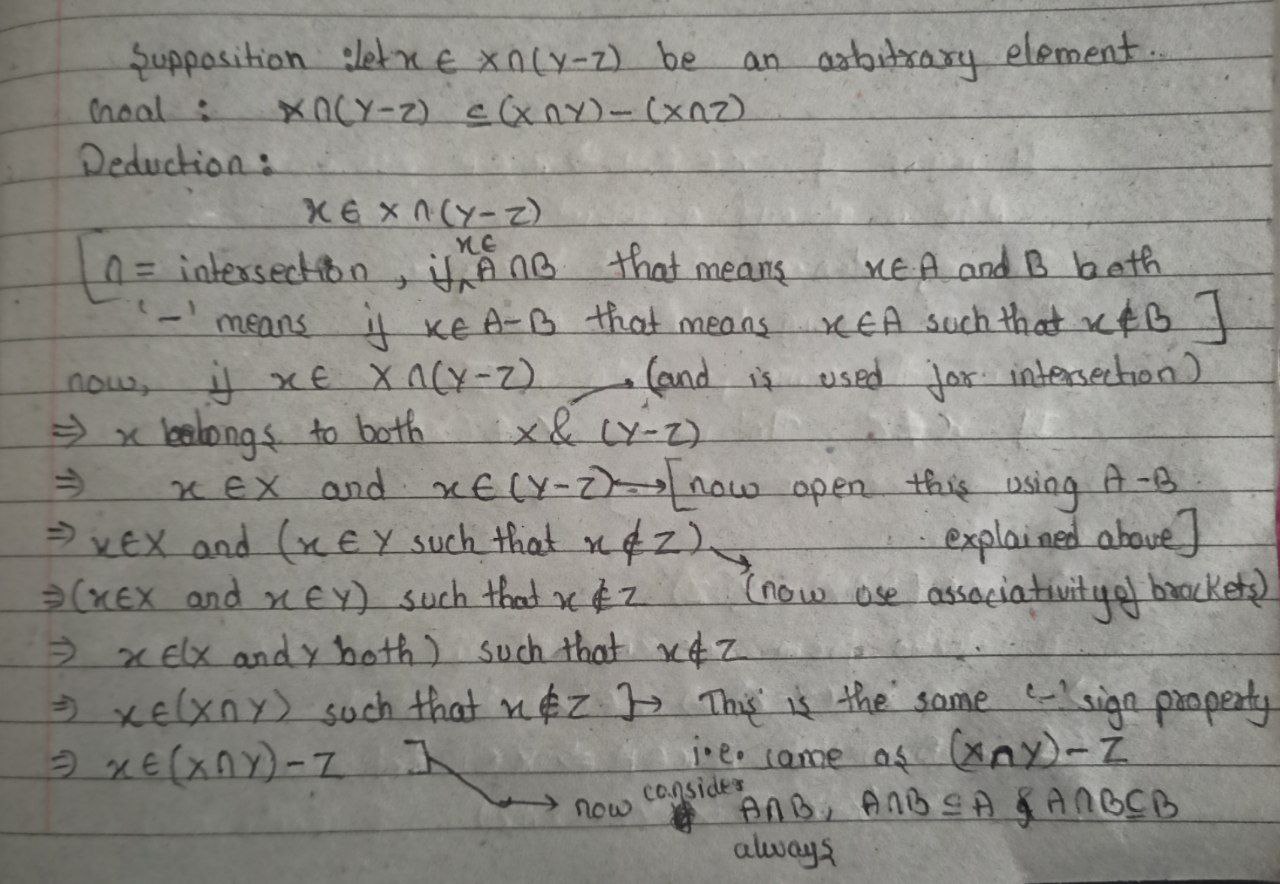 Supposition : let x ∈ X∩(Y-Z) be an arbitrary element..
Goal : X∩(Y-Z) ⊆ (X∩Y) - (X∩Z)
Deduction :
x ∈ X∩(Y-Z)
[∩ = intersection, if x∈ A∩B that means x∈A and B both
'-' means if x∈A-B that means x∈A such that x∉B ]
now, if x∈ X∩(Y-Z) → (and is used for intersection)
⇒ x belongs to both X & (Y-Z)
⇒ x∈X and x∈(Y-Z) → [now open this using A-B
⇒ x∈X and (x∈Y such that x∉Z) explained above]
⇒ (x∈X and x∈Y) such that x∉Z (now use associativity of brackets)
⇒ x∈(X and Y both) such that x∉Z
⇒ x∈(X∩Y) such that x∉Z ]→ This is the same '-' sign property
⇒ x∈(X∩Y)-Z ] i.e. same as (X∩Y)-Z
→ now consider A∩B, A∩B ⊆ A & A∩B⊆B
always